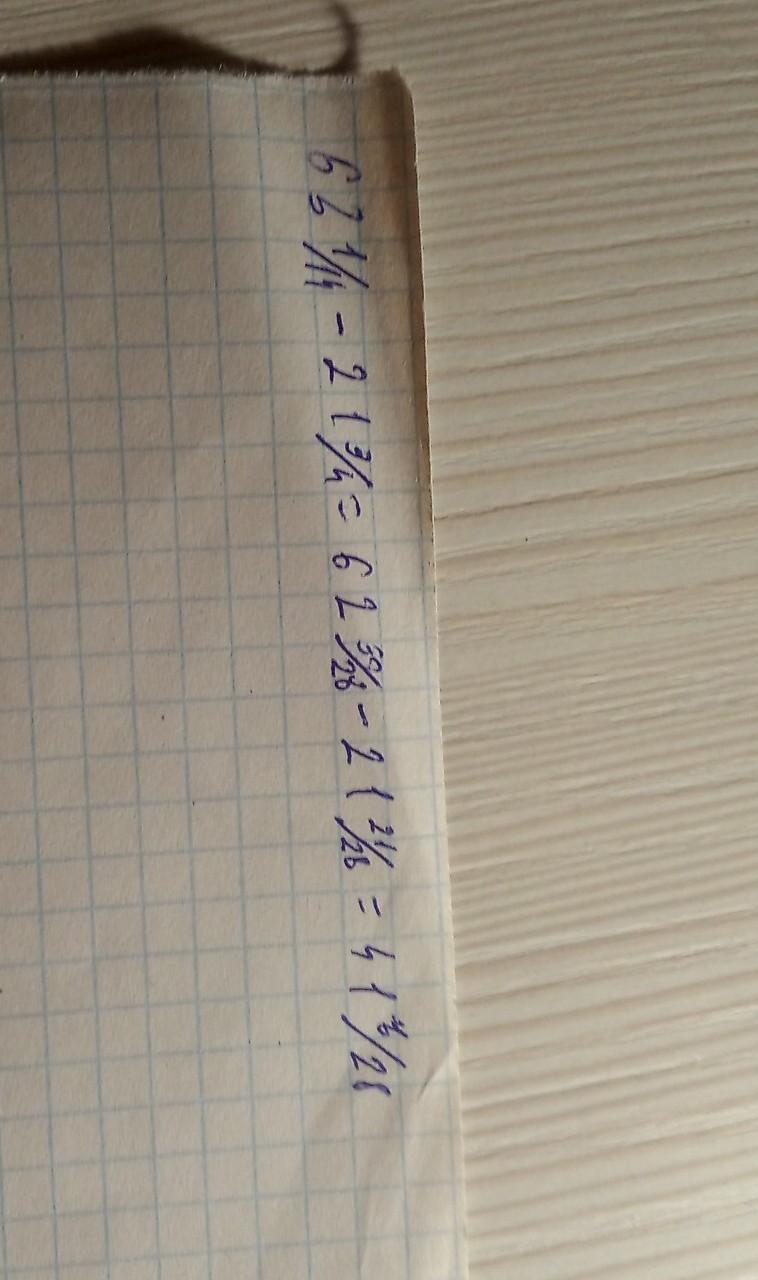 63 1/14 - 21 3/4 = 62 30/28 - 21 21/28 = 41 /28